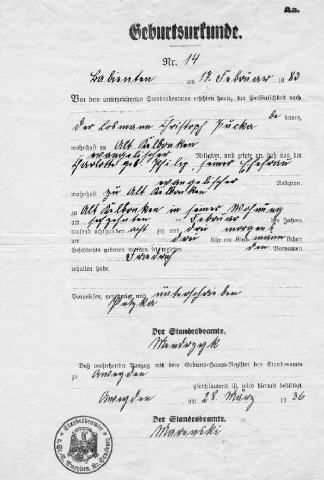 Aa.
Geburtsurkunde.
Nr. 14
Babienten am 17. Februar 1883
Vor dem unterzeichneten Standesbeamten erschien heute, der Persönlichkeit nach
be kannt,
der Losmann Christoph Pucka
wohnhaft zu Alt Kelbonken
evangelischer Religion, und zeigte an, daß von der
Charlotte geb. Philipp, seiner Ehefrau
evangelischer Religion,
wohnhaft zu Alt Kelbonken
zu Alt Kelbonken in seiner Wohnung
am Februar des Jahres
tausend achthundert acht zig und drei morgens
um drei Uhr ein Kind männ lichen
Geschlechts geboren worden sei, welches den Vornamen
erhalten habe.
Vorgelesen, genehmigt und unterschrieben
Der Standesbeamte.
Daß vorstehender Auszug mit dem Geburts-Haupt-Register des Standesamts
zu Aweyden
gleichlautend ist, wird hiermit bestätigt.
Aweyden am 28. März 1936
Der Standesbeamte.
Marenski